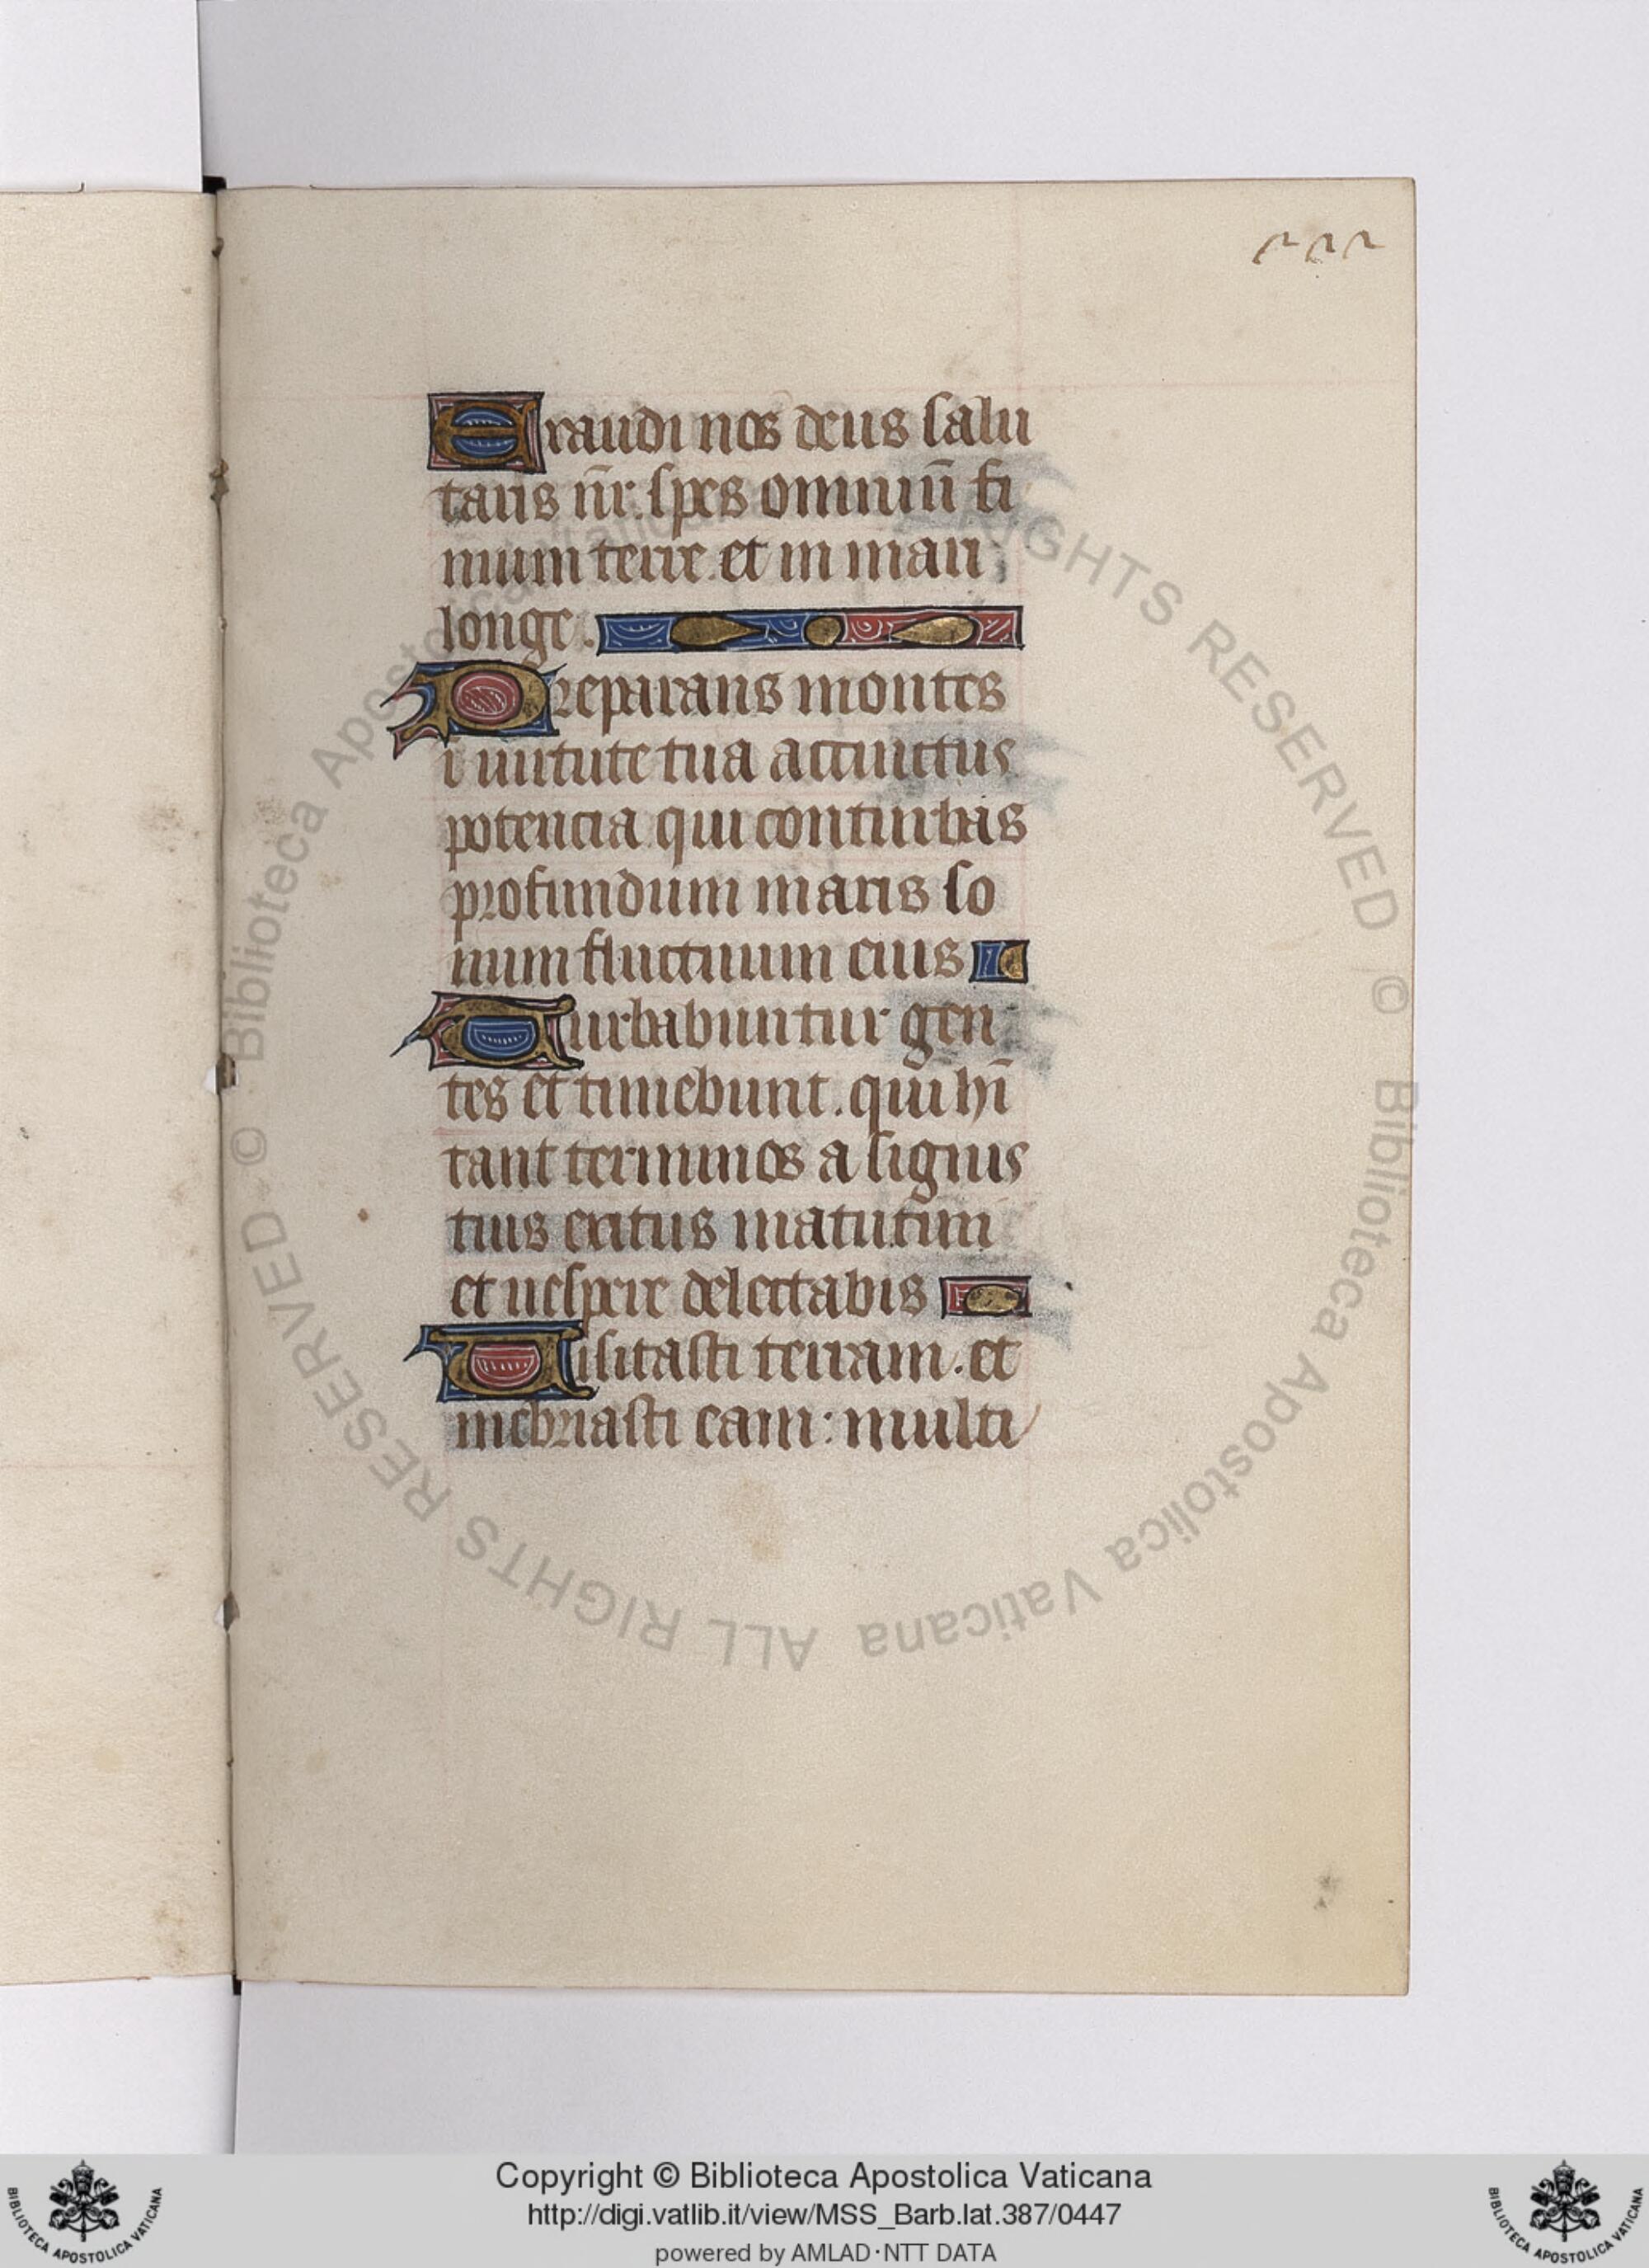 ꝛꝛꝛ
Exaudi nos deus salu
taris nr̄. spes omniū fi
nium terre et in mari
longe.
Preparans montes
ī uirtute tua accinctus
potencia qui conturbas
profundum maris so
num fluctuum eius
Turbabuntur gen
tes et timebunt. qui hī
tant terminos a signis
tuis exitus matutini
et uespere delectabis
Uisitasti terram. et
inebriasti eam: multi
Copyright © Biblioteca Apostolica Vaticana
http://digi.vatlib.it/view/MSS_Barb.lat.387/0447
powered by AMLAD·NTT DATA
BIBLIOTECA APOSTOLICA VATICANA
BIBLIOTECA APOSTOLICA VATICANA
© Biblioteca Apostolica Vaticana ALL RIGHTS RESERVED
© Biblioteca Apostolica Vaticana ALL RIGHTS RESERVED